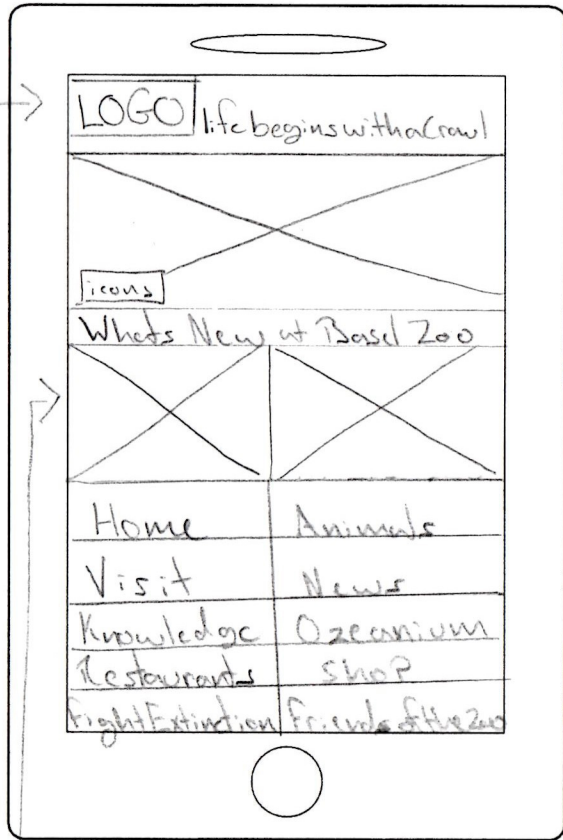 LOGO lifebeginswithaCrawl
icons
Whats New at Basel Zoo
Home Animals
Visit News
Knowledge Ozeanium
Restaurants Shop
FightExtinction FriendsoftheZoo